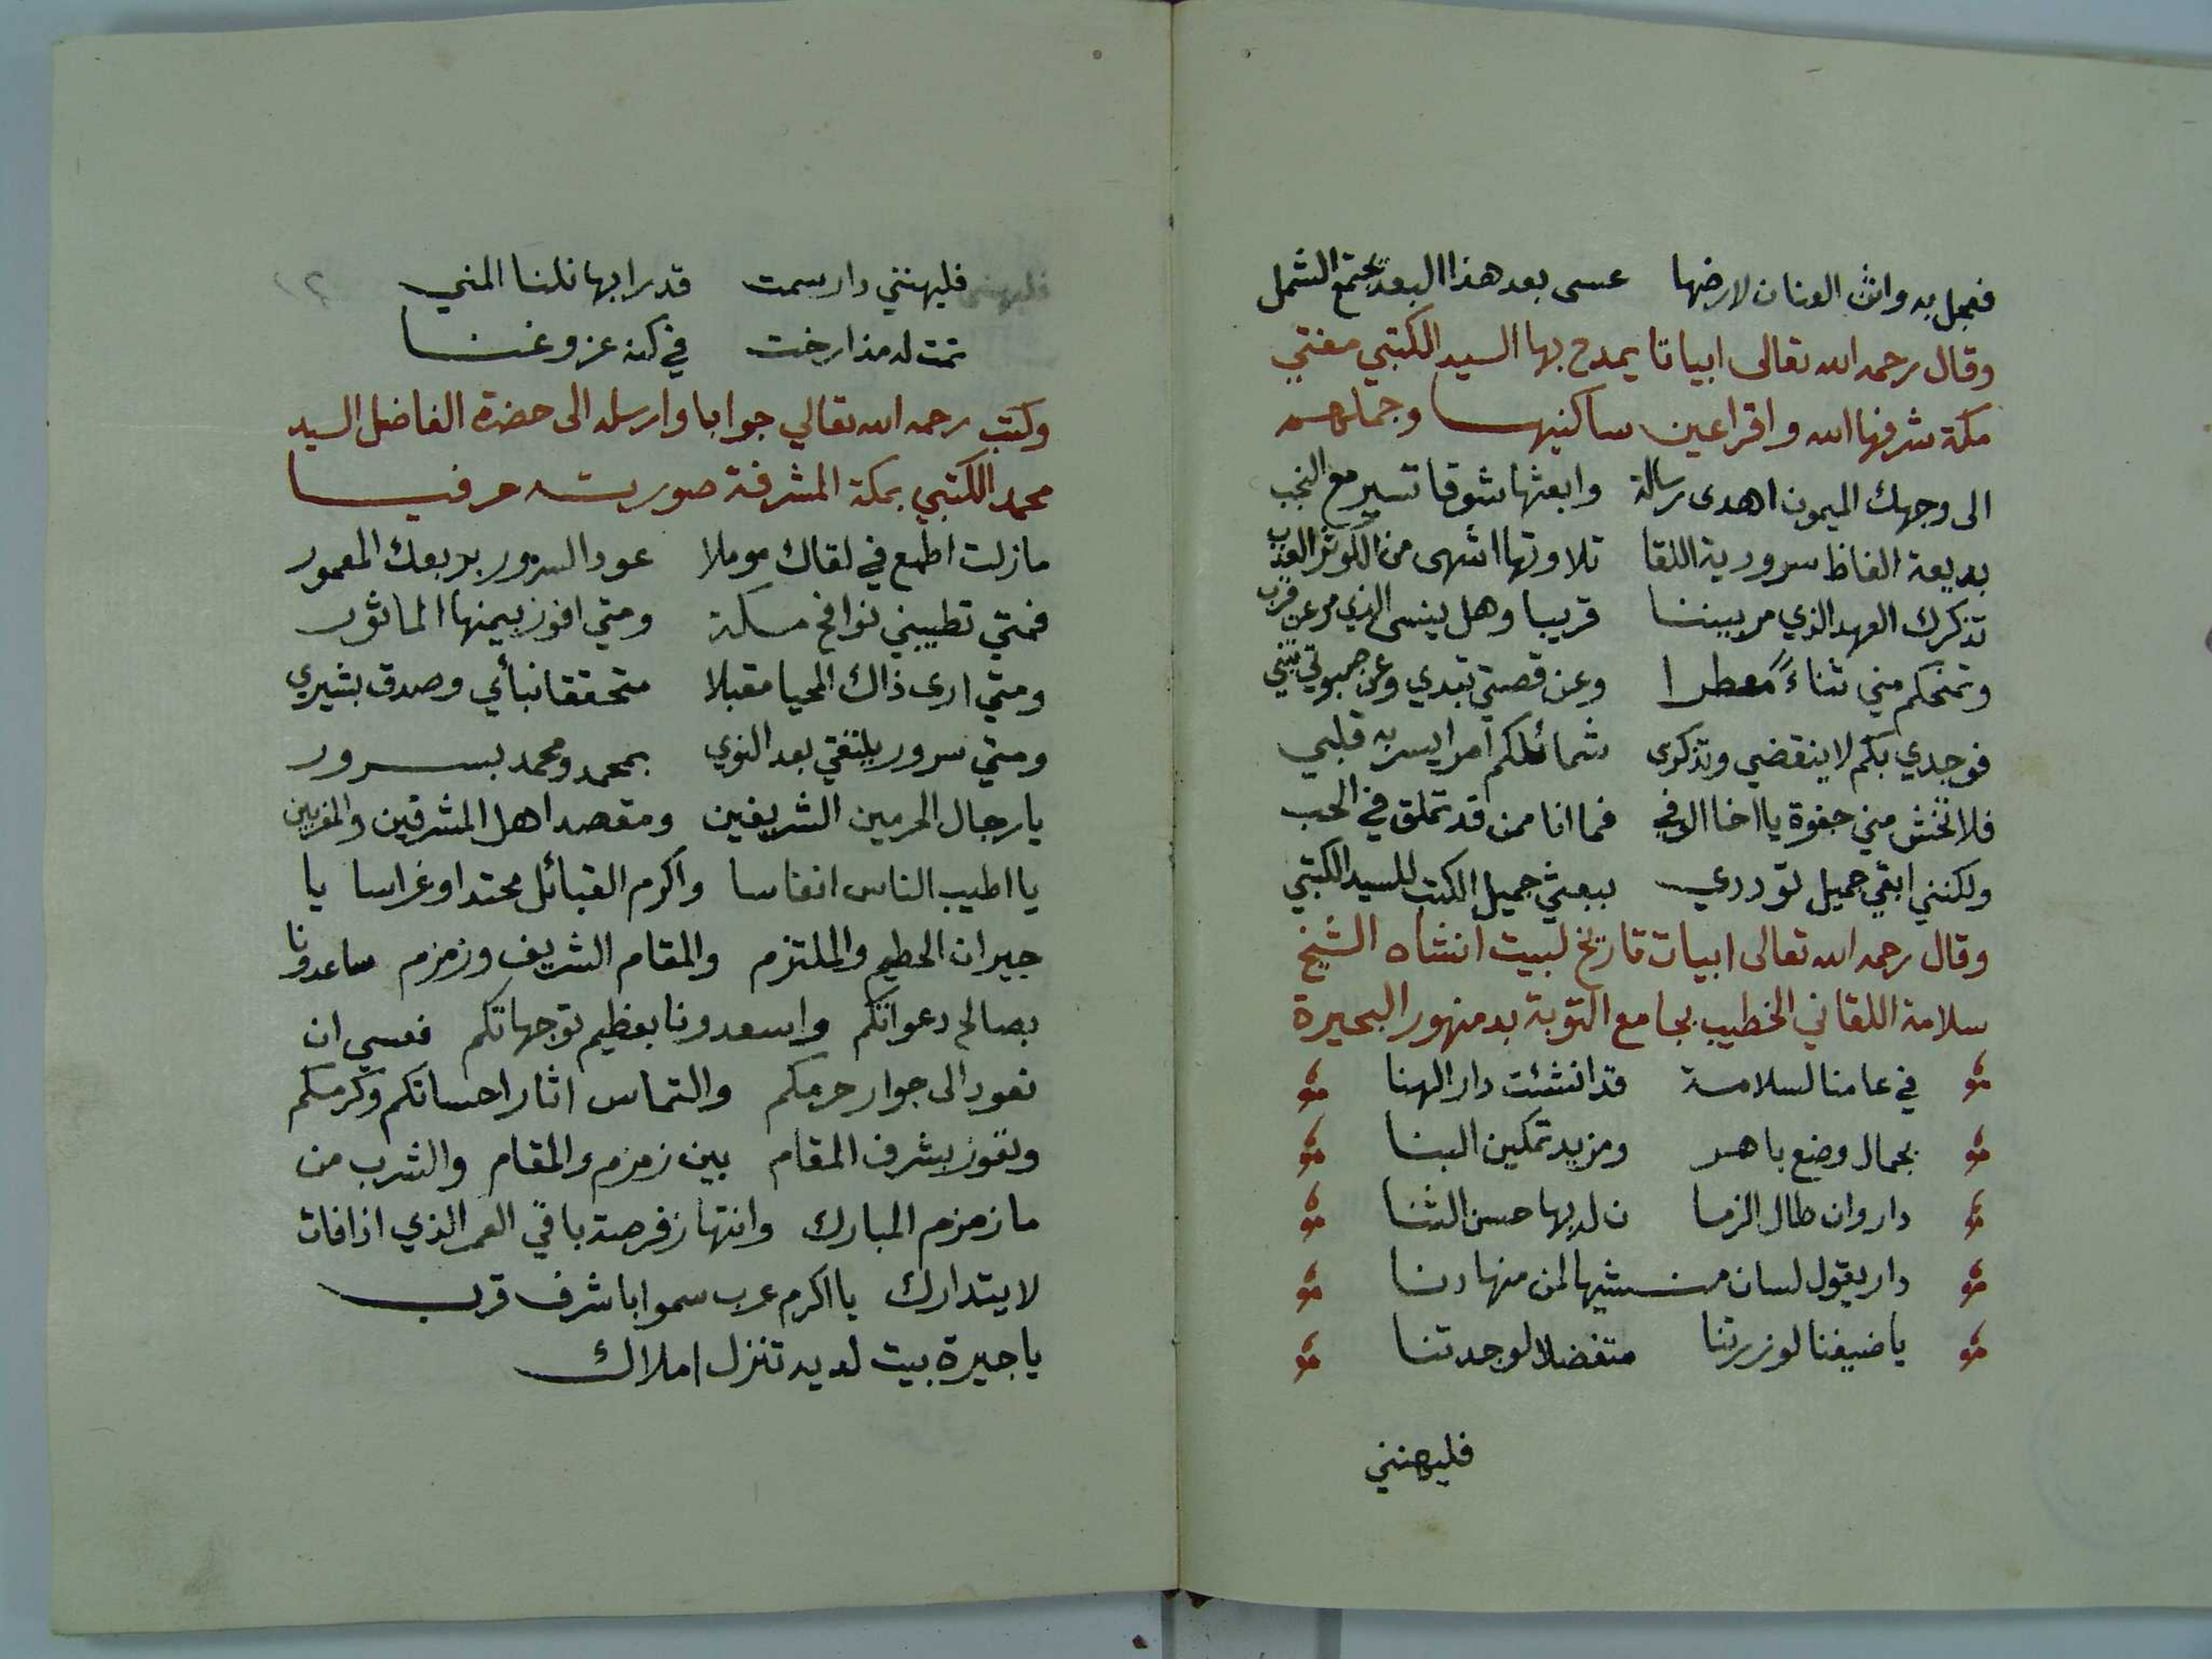 فعجل به واثن العنان لارضها عسى بعد هذا البعد يجتمع الشمل
وقال رحمه الله تعالى ابياتا يمدح بها السيد الكتبي مفتي
مكة شرفها الله واقر اعين ساكنيها وجملهم
الى وجهك الميمون اهدى رسالة وابعثها شوقا تسير مع النجب
بديعة الفاظ سرورية اللقا تلاوتها اشهى من الكوثر العذب
تذكرك العهد الذي مر بيننا قريبا وهل ينسى الذي مر عن قرب
وتمنحكم مني ثناءً معطرا وعن قصتي تبدي وعن صبوتي تنبي
فوجدي بكم لا ينقضي وتذكرى شمائلكم امرا يسر به قلبي
فلا تخش مني جفوة يا اخا الوفي فما انا ممن قد تملق في الحب
ولكنني ابقي جميل توددي ببعثي جميل الكتب للسيد الكتبي
وقال رحمه الله تعالى ابيات تاريخ لبيت انشاه الشيخ
سلامة اللقاني الخطيب بجامع التوبة بدمنهور البحيرة
في عامنا لسلامة قد انشئت دار الهنا
بجمال وضع باهر ومزيد تمكين البنا
دار وان طال الزما ن لديها حسن الثنا
دار يقول لسان منشيها لمن منها دنا
يا ضيفنا لو زرتنا متفضلا لوجدتنا
فليهنني
فليهنني دار سمت قدرا بها نلنا المني
تمت له مذ ارخت في كنه عز وغنا
وكتب رحمه الله تعالي جوابا وارسله الى حضرة الفاضل السيد
محمد الكتبي بمكة المشرفة صورته حرفيا
مازلت اطمع في لقاك موملا عود السرور بربعك المعمور
فمتي تطيبني نوافح مسكة ومتي افوز بيمنها الماثور
ومتي ارى ذاك المحيا مقبلا متحققا نبأي وصدق بشيري
ومتي سرور يلتقي بعد النوي بمحمد ومحمد بسرور
يا رجال الحرمين الشريفين ومقصد اهل المشرقين والمغربين
يا اطيب الناس انفاسا واكرم القبائل محتدا وغراسا يا
جيران الحطيم والملتزم والمقام الشريف وزمزم ساعدونا
بصالح دعواتكم واسعدونا بعظيم توجهاتكم فعسي ان
نعود الى جوار حرمكم والتماس اثار احسانكم وكرمكم
ونفوز بشرف المقام بين زمزم والمقام والشرب من
ما زمزم المبارك وانتهاز فرصة باقي العمر الذي اذا فات
لا يتدارك يا اكرم عرب سموا باشرف قرب
يا جيرة بيت لديه تنزل املاك